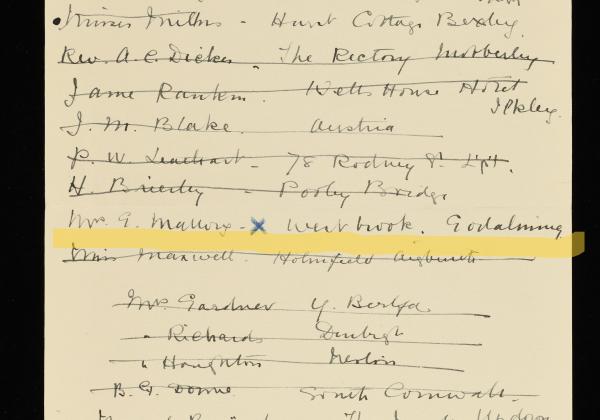 Misses Mills - Hurst Cottage Bexley
Rev. A. C. Dicker - The Rectory Mobberley
Jame Rankin. Wells House Hotel
Ilkley.
J. M. Blake. Austria
P. W. 78 Rodney St. L'pl.
H. Brierley - Pooley Bridge
Mrs. G. Mallory - x Westbrook. Godalming
Miss Maxwell. Holmfield Aigburth
Mrs. Gardner Y.
" Richards Denbigh
" Houghton
B. G. Donne South Cornwall